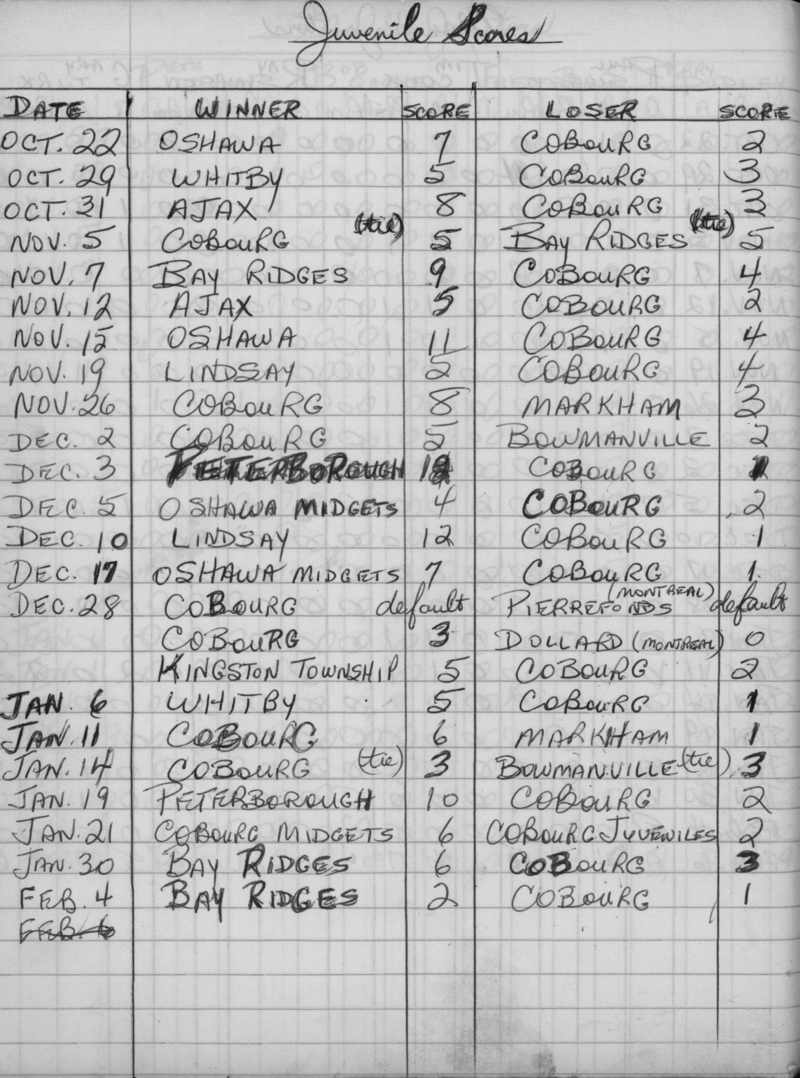 Juvenile Scores
DATE WINNER SCORE LOSER SCORE
OCT. 22 OSHAWA 7 COBOURG 2
OCT. 29 WHITBY 5 COBOURG 3
OCT. 31 AJAX 8 COBOURG 3
NOV. 5 COBOURG (tie) 5 BAY RIDGES (tie) 5
NOV. 7 BAY RIDGES 9 COBOURG 4
NOV. 12 AJAX 5 COBOURG 2
NOV. 15 OSHAWA 11 COBOURG 4
NOV. 19 LINDSAY 5 COBOURG 4
NOV. 26 COBOURG 8 MARKHAM 3
DEC. 2 COBOURG 5 BOWMANVILLE 2
DEC. 3 PETERBOROUGH COBOURG
DEC. 5 OSHAWA MIDGETS 4 COBOURG 2
DEC. 10 LINDSAY 12 COBOURG 1
DEC. 17 OSHAWA MIDGETS 7 COBOURG 1
DEC. 28 COBOURG default PIERREFONDS (MONTREAL) default
COBOURG 3 DOLLARD (MONTREAL) 0
KINGSTON TOWNSHIP 5 COBOURG 2
JAN. 6 WHITBY 5 COBOURG 1
JAN. 11 COBOURG 6 MARKHAM 1
JAN. 14 COBOURG (tie) 3 BOWMANVILLE (tie) 3
JAN. 19 PETERBOROUGH 10 COBOURG 2
JAN. 21 COBOURG MIDGETS 6 COBOURG JYUVENILES 2
JAN. 30 BAY RIDGES 6 COBOURG 3
FEB. 4 BAY RIDGES 2 COBOURG 1
FEB. 6